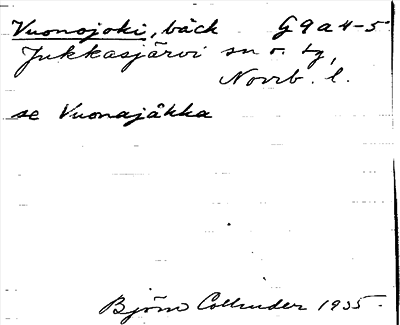 Vuonojoki, bäck G 9 a 4-5
Jukkasjärvi sn o. tg,
Norrb. l.
se Vuonajåkka
Björn Collinder 1935.